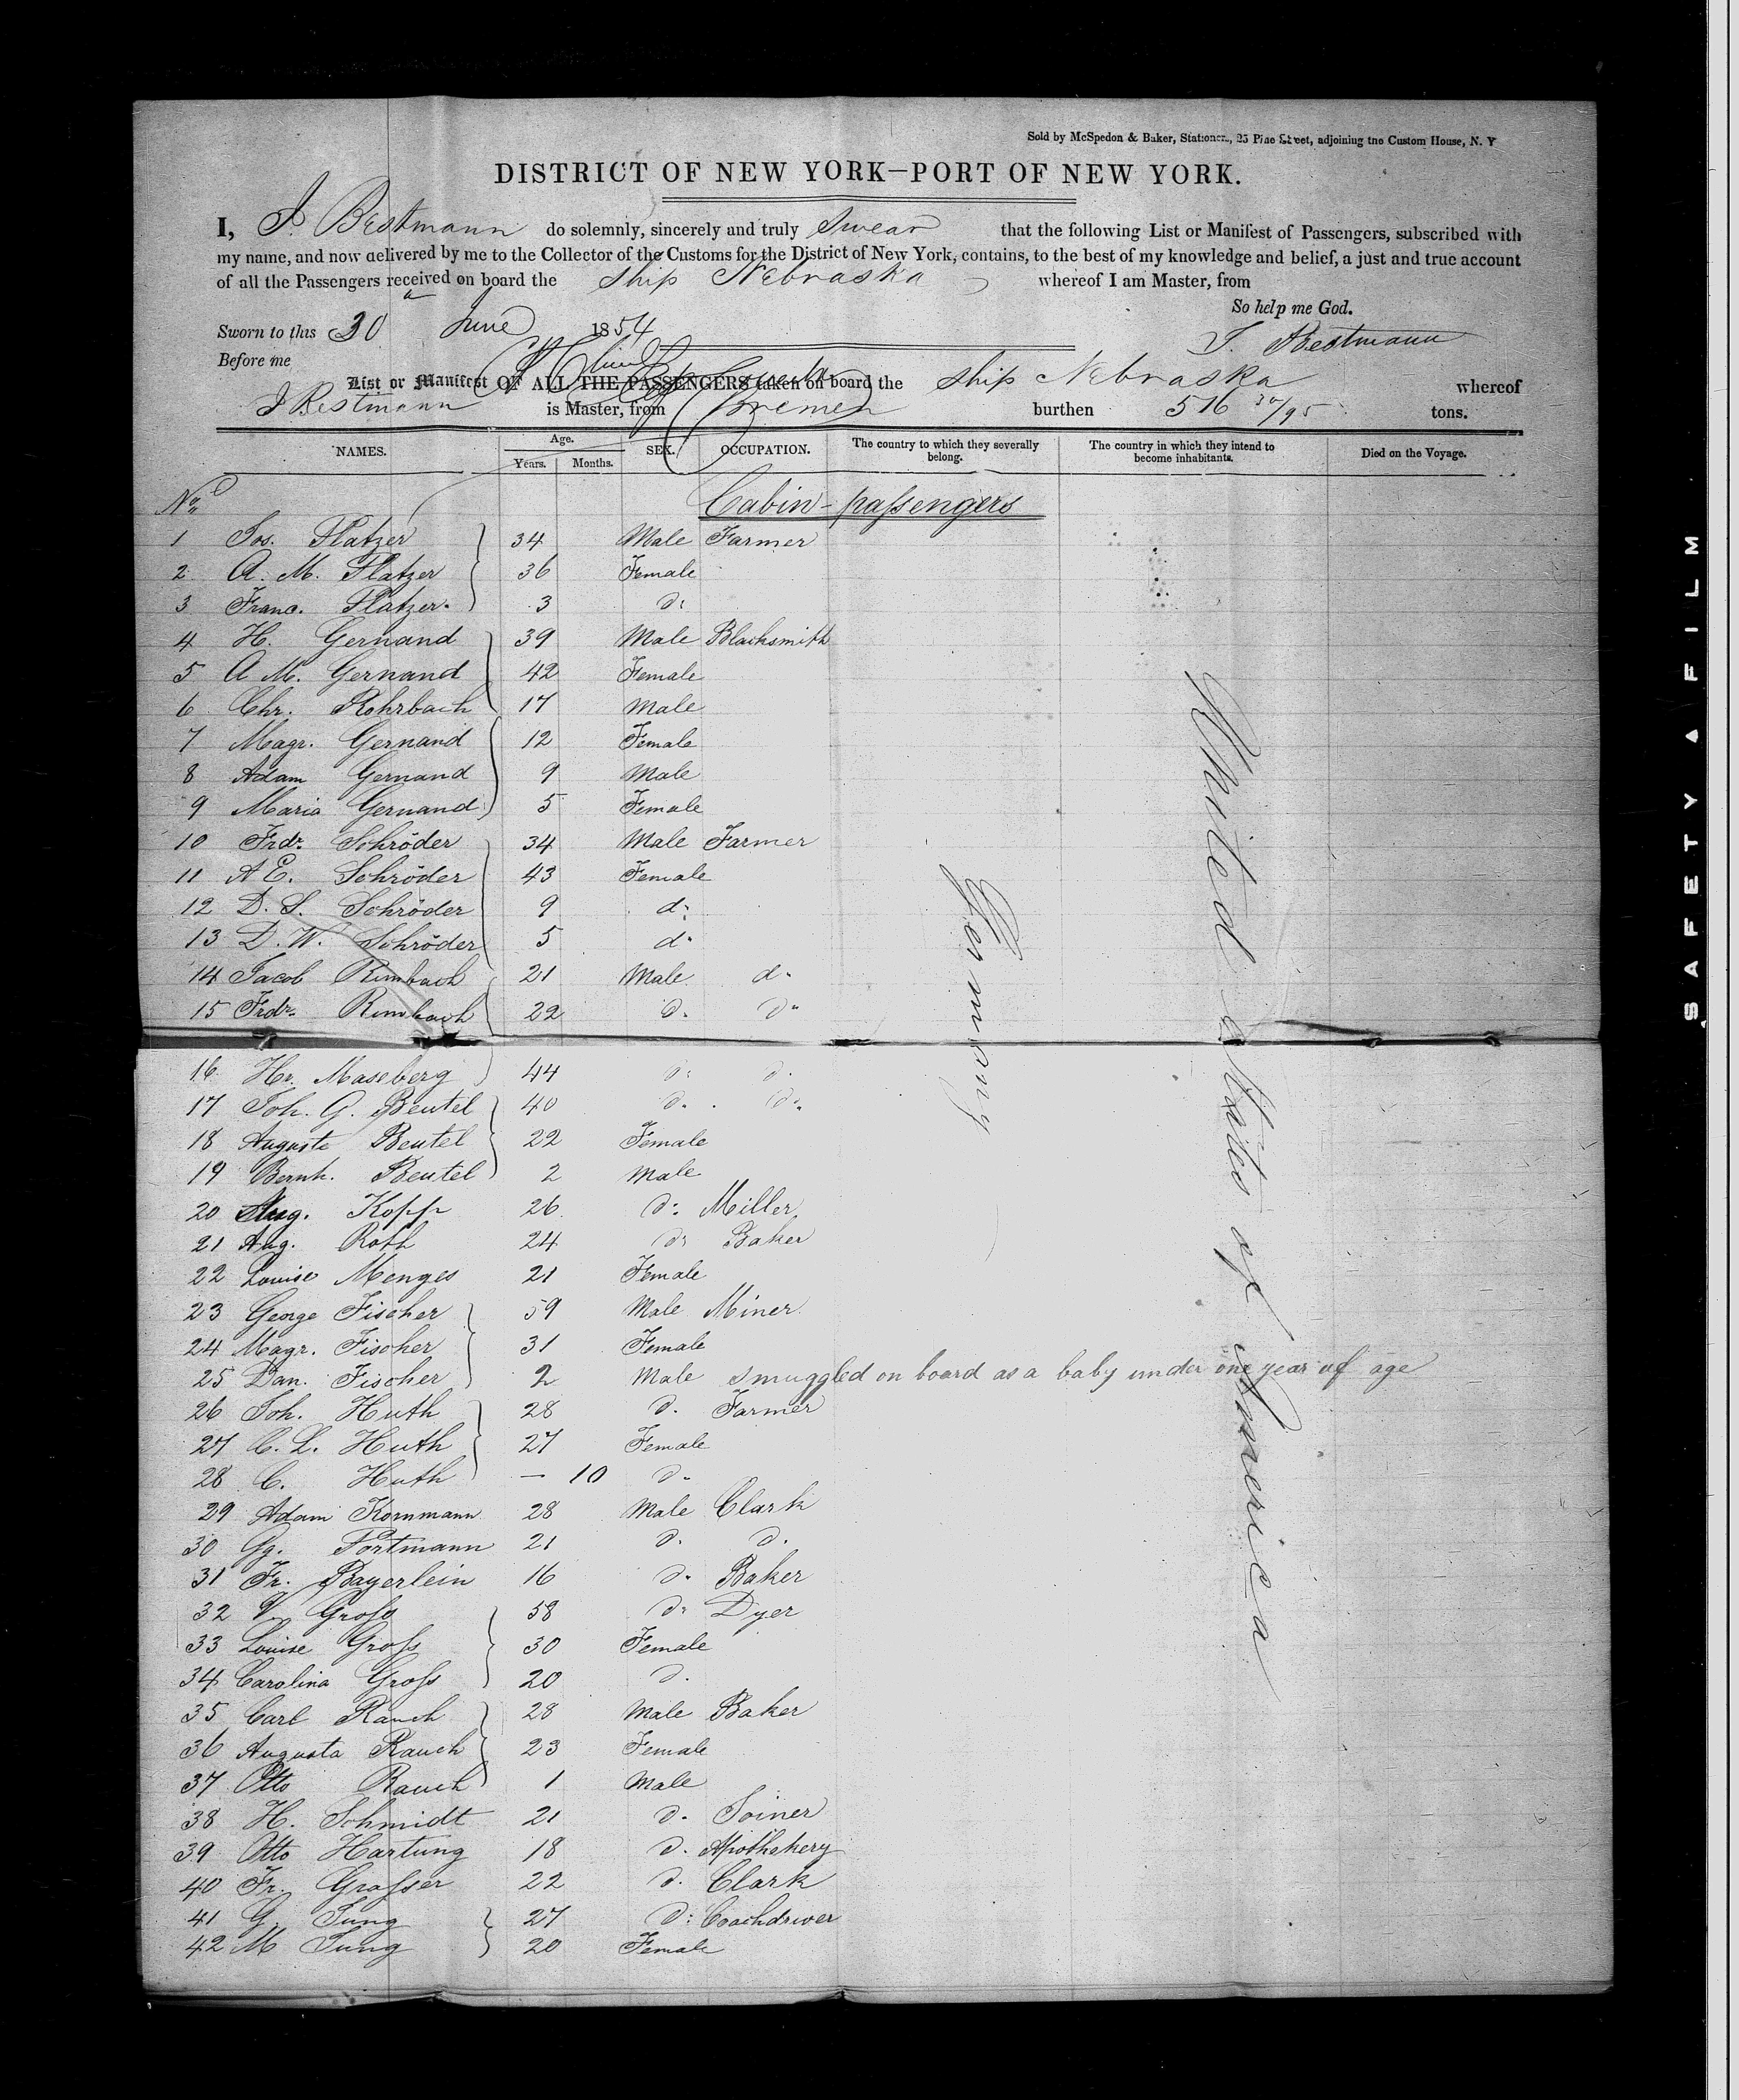 Sold by McSpedon & Baker, Stationers, 25 Pine Street, adjoining the Custom House, N. Y
DISTRICT OF NEW YORK—PORT OF NEW YORK.
I, J. Bestmann do solemnly, sincerely and truly swear that the following List or Manifest of Passengers, subscribed with
my name, and now delivered by me to the Collector of the Customs for the District of New York, contains, to the best of my knowledge and belief, a just and true account
of all the Passengers received on board the ship Nebraska whereof I am Master, from
So help me God.
Sworn to this 30 June 1854
J. Bestmann
Before me
List or Manifest OF ALL THE PASSENGERS taken on board the ship Nebraska whereof
J Bestmann is Master, from Bremen burthen 516 30/95 tons.
NAMES. Age. Years. Months. SEX. OCCUPATION. The country to which they severally belong. The country in which they intend to become inhabitants. Died on the Voyage.
No Cabin-passengers
1 Jos. Platzer 34 Male Farmer
2 A. M. Platzer 36 Female
3 Franc. Platzer. 3 do
4 H. Gernand 39 Male Blacksmith
5 A M. Gernand 42 Female
6 Chr. Rohrbach 17 Male
7 Magr. Gernand 12 Female
8 Adam Gernand 9 Male
9 Maria Gernand 5 Female
10 Frdr. Schröder 34 Male Farmer
11 A E. Schröder 43 Female
12 D. S. Schröder 9 do
13 D. W. Schröder 5 do
14 Jacob Rimbach 21 Male do
15 Frdr. Rimbach 22 do do
16 Hr. Maseberg 44 do do
17 Joh. G. Beutel 40 do do
18 Auguste Beutel 22 Female
19 Bernh. Beutel 2 Male
20 Aug. Kopp 26 do Miller
21 Aug. Roth 24 do Baker
22 Louise Menges 21 Female
23 George Fischer 59 Male Miner
24 Magr. Fischer 31 Female
25 Dan. Fischer 2 Male smuggled on board as a baby under one year of age
26 Joh. Huth 28 do Farmer
27 C. L. Huth 27 Female
28 C. Huth — 10 do
29 Adam Kornmann 28 Male Clark
30 Gg. Fortmann 21 do do
31 Fr. Bayerlein 16 do Baker
32 V. Gross 58 do Dyer
33 Louise Gross 30 Female
34 Carolina Gross 20 do
35 Carl Rauch 28 Male Baker
36 Augusta Rauch 23 Female
37 Otto Rauch 1 Male
38 H. Schmidt 21 do Joiner
39 Otto Hartung 18 do Apothekery
40 Fr. Grasser 22 do Clark
41 G. Jung 27 do Coachdriver
42 M Jung 20 Female
Germany
United States of America
SAFETY FILM